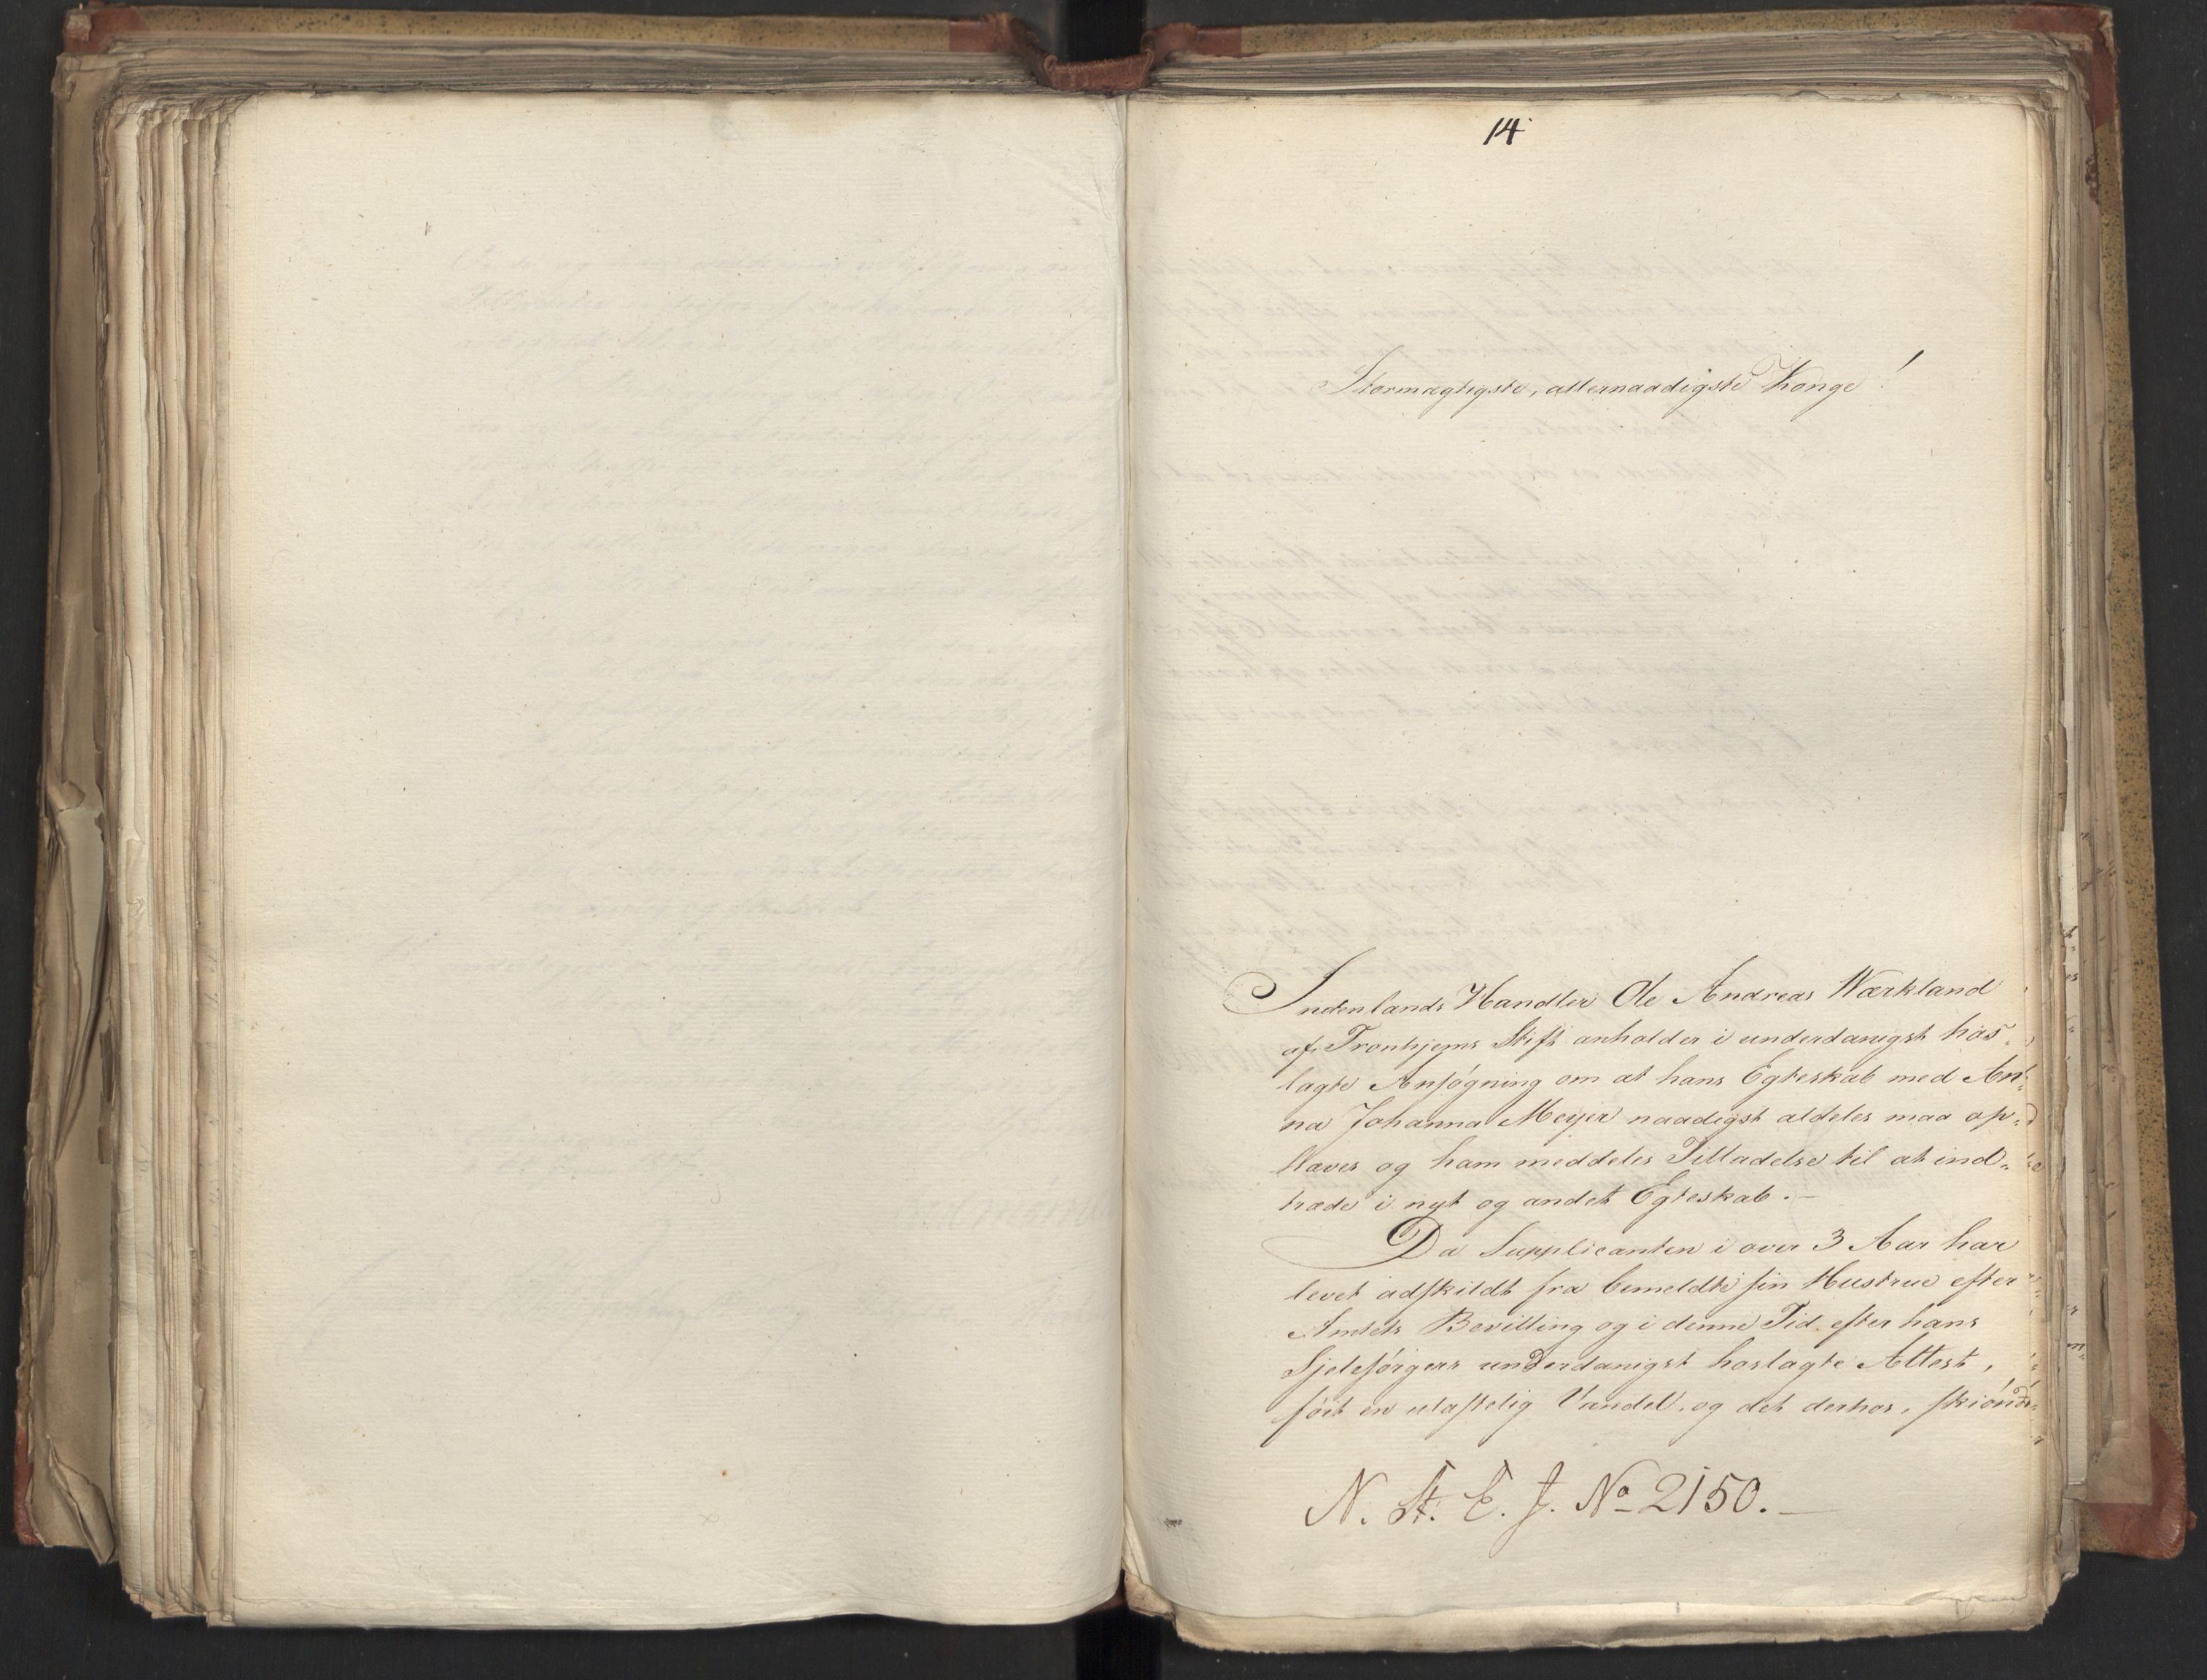 14
Stormægtigste, allernaadigste Konge!
Indenlands Handler Ole Andreas Wærkland
af Tronhjems Stift anholder i underdanigst hos„
lagte Ansøgning om at hans Egteskab med An„
na Johanna Meyer naadigst aldeles maa op„
hæves og ham meddeles Tilladelse til at ind„
træde i nyt og andet Egteskab.—
Da Supplicanten i over 3 Aar har
levet adskildt fra bemeldte sin Hustrue efter
Amtets Bevilling og i denne Tid efter hans
Sjelesørgers underdanigst hoslagte Attest,
ført en ulastelig Vandel, og det derhos, skiøndt
N. St. E. J. No 2150.—